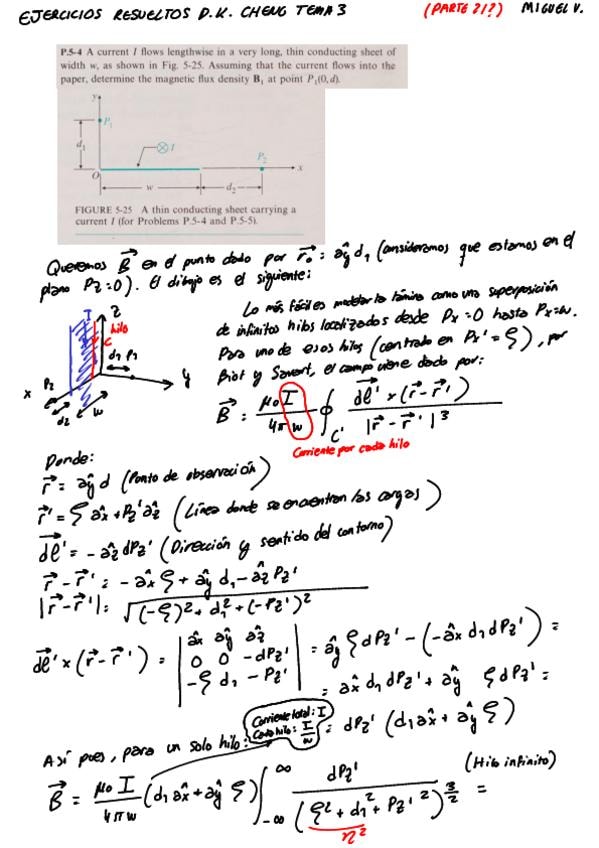 EJERCICIOS RESUELTOS D.K. CHENG TEMA 3 (PARTE 21?) MIGUEL V.
P.5-4 A current I flows lengthwise in a very long, thin conducting sheet of
width w, as shown in Fig. 5-25. Assuming that the current flows into the
paper, determine the magnetic flux density B₁ at point P₁(0, d).
y
P₁
d₁
⊗ I
P₂
O
x
w
d₂
FIGURE 5-25 A thin conducting sheet carrying a
current I (for Problems P.5-4 and P.5-5).
Queremos B⃗ en el punto dado por r⃗₀ = ây d₁ (consideramos que estamos en el
plano Pz = 0). El dibujo es el siguiente:
Lo más fácil es modelar la lámina como una superposición
de infinitos hilos localizados desde Px = 0 hasta Px = w.
Para uno de esos hilos (centrado en Px' = ξ), por
Biot y Savart, el campo viene dado por:
I z
hilo
C
d₁ P₁
x P₂ y
d₂ w
B⃗ = μ₀ I / 4π w ∮C' dl⃗' × (r⃗ - r⃗') / |r⃗ - r⃗'|³
Corriente por cada hilo
Donde:
r⃗ = ây d (Punto de observación)
r⃗' = ξ âx + Pz' âz (Línea donde se encuentran las cargas)
dl⃗' = - âz dPz' (Dirección y sentido del contorno)
r⃗ - r⃗' = - âx ξ + ây d₁ - âz Pz'
|r⃗ - r⃗'| = √((-ξ)² + d₁² + (-Pz')²)
dl⃗' × (r⃗ - r⃗') = | âx ây âz | = ây ξ dPz' - (- âx d₁ dPz') =
| 0 0 -dPz' | = âx d₁ dPz' + ây ξ dPz' =
| -ξ d₁ -Pz' | = dPz' (d₁ âx + ây ξ)
Corriente total: I
Cada hilo: I/w
Así pues, para un solo hilo:
B⃗ = μ₀ I / 4π w (d₁ âx + ây ξ) ∫₋∞^∞ dPz' / (ξ² + d₁² + Pz'²)^(3/2) = (Hilo infinito)
η²